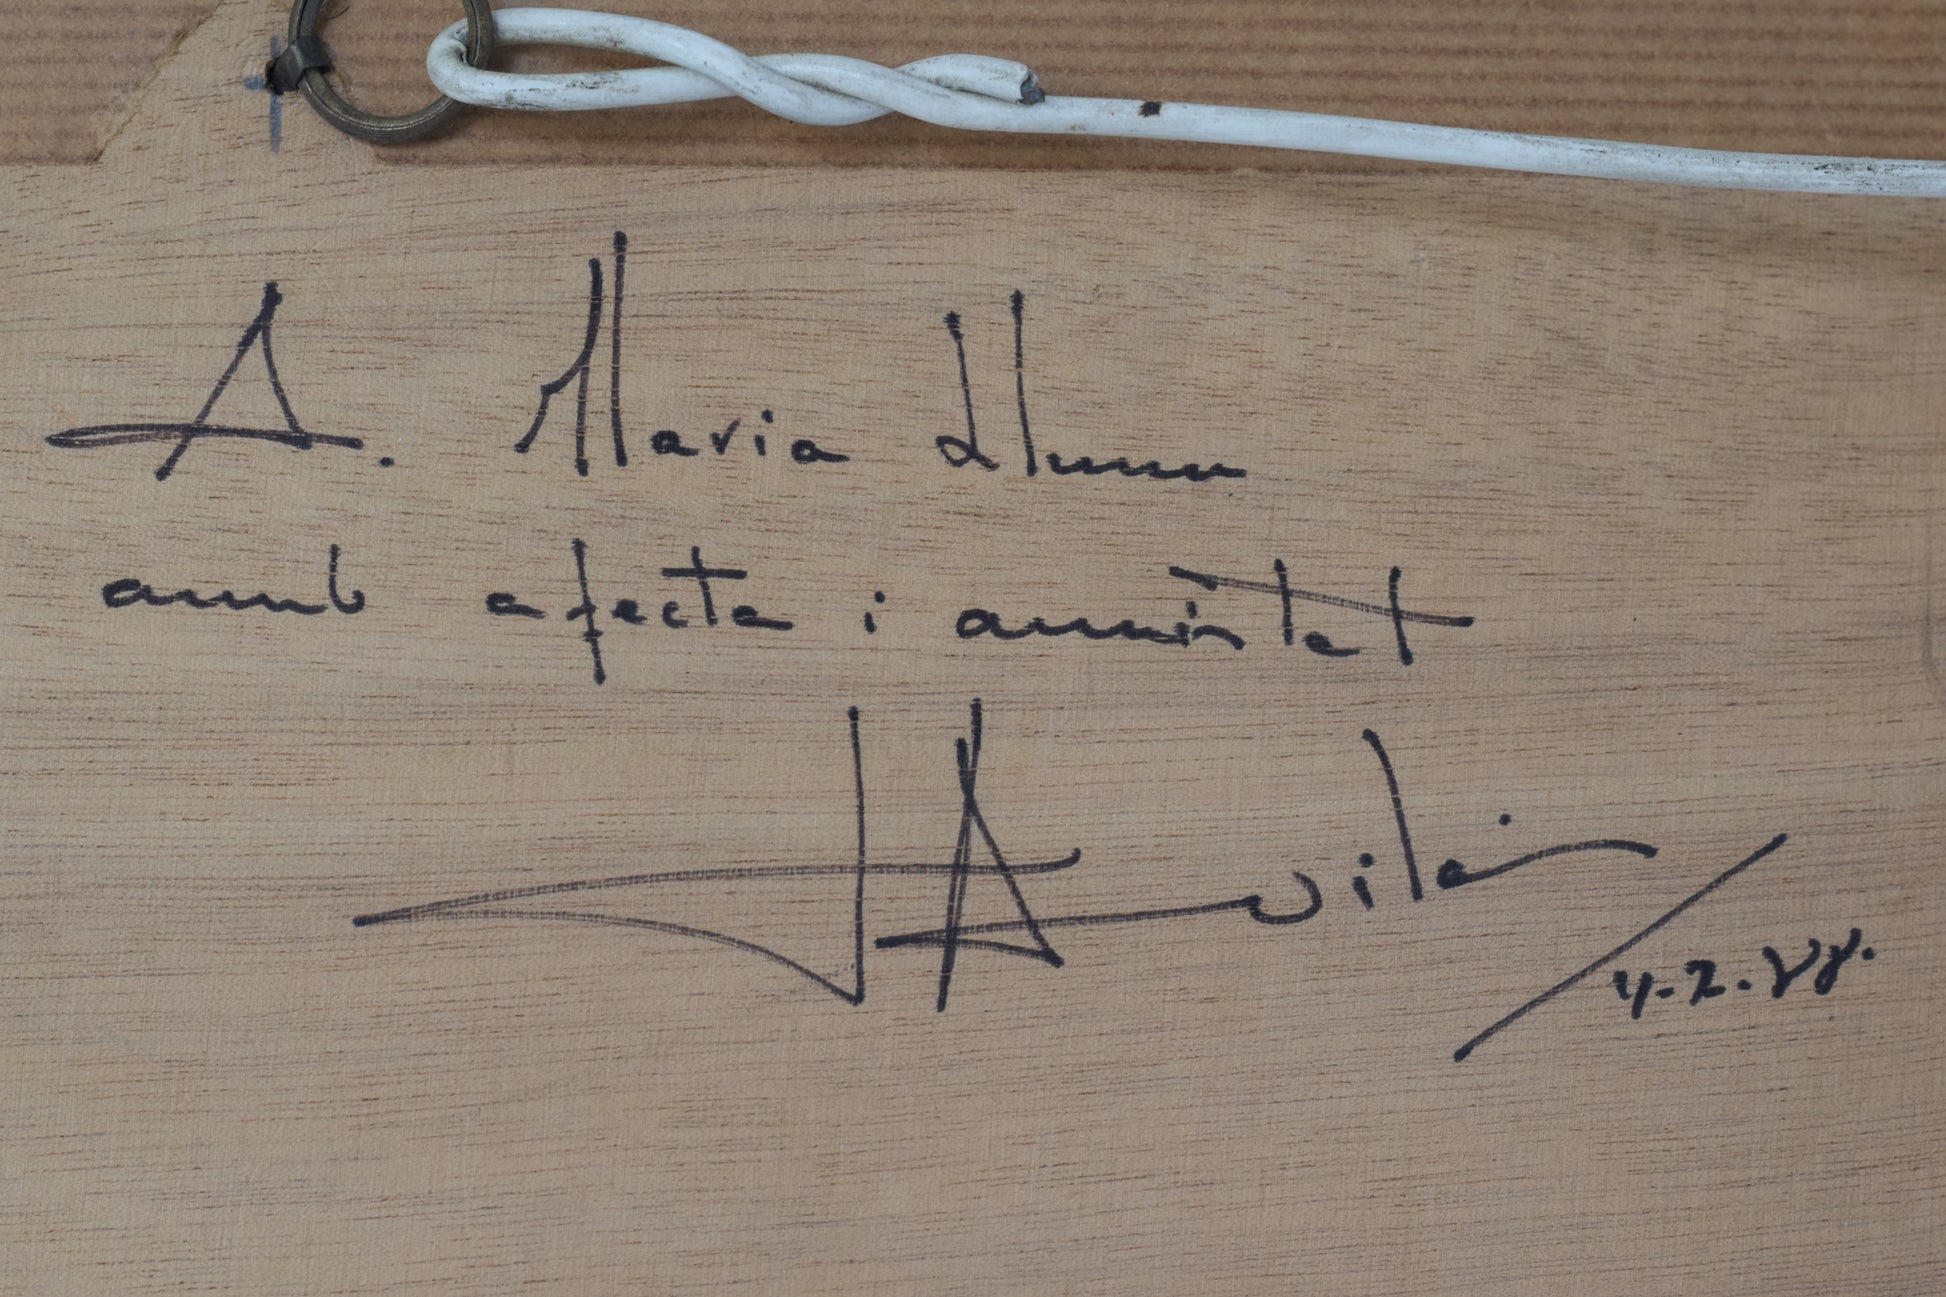 A. Maria Lluna
amb afecte i amistat
J A Vilà
4.2.88.